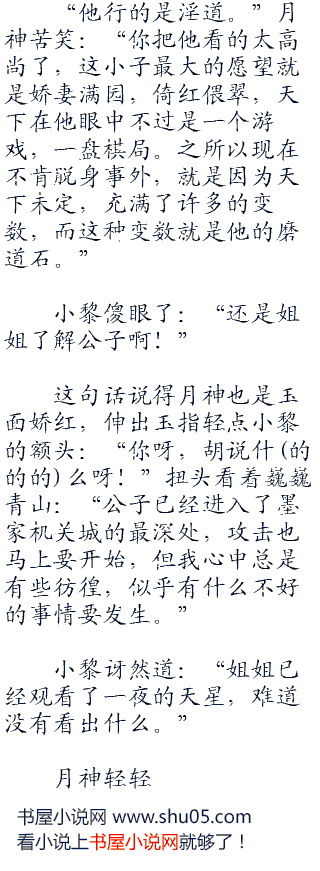 “他行的是淫道。”月
神苦笑：“你把他看的太高
尚了，这小子最大的愿望就
是娇妻满园，倚红偎翠，天
下在他眼中不过是一个游
戏，一盘棋局。之所以现在
不肯脱身事外，就是因为天
下未定，充满了许多的变
数，而这种变数就是他的磨
道石。”
小黎傻眼了：“还是姐
姐了解公子啊！”
这句话说得月神也是玉
面娇红，伸出玉指轻点小黎
的额头：“你呀，胡说什(的
的的)么呀！”扭头看着巍巍
青山：“公子已经进入了墨
家机关城的最深处，攻击也
马上要开始，但我心中总是
有些彷徨，似乎有什么不好
的事情要发生。”
小黎讶然道：“姐姐已
经观看了一夜的天星，难道
没有看出什么。”
月神轻轻
书屋小说网 www.shu05.com
看小说上书屋小说网就够了！